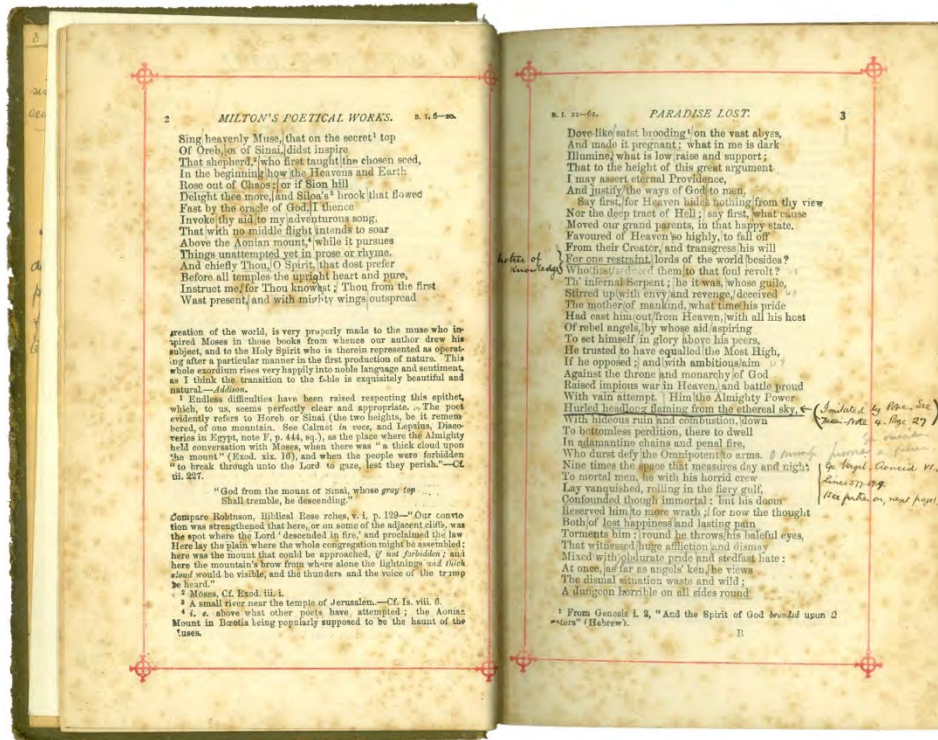 2 MILTON'S POETICAL WORKS. B. I. 6—20.
Sing heavenly Muse, that on the secret¹ top
Of Oreb, or of Sinai, didst inspire
That shepherd,² who first taught the chosen seed,
In the beginning how the Heavens and Earth
Rose out of Chaos; or if Sion hill
Delight thee more, and Siloa's³ brook that flowed
Fast by the oracle of God, I thence
Invoke thy aid to my adventurous song,
That with no middle flight intends to soar
Above the Aonian mount,⁴ while it pursues
Things unattempted yet in prose or rhyme.
And chiefly Thou, O Spirit, that dost prefer
Before all temples the upright heart and pure,
Instruct me, for Thou knowest; Thou from the first
Wast present, and with mighty wings outspread
creation of the world, is very properly made to the muse who in-
spired Moses in those books from whence our author drew his
subject, and to the Holy Spirit who is therein represented as operat-
ing after a particular manner in the first production of nature. This
whole exordium rises very happily into noble language and sentiment,
as I think the transition to the fable is exquisitely beautiful and
natural.—Addison.
¹ Endless difficulties have been raised respecting this epithet,
which, to us, seems perfectly clear and appropriate. The poet
evidently refers to Horeb or Sinai (the two heights, be it remem
bered, of one mountain. See Calmet in voce, and Lepsius, Disco-
veries in Egypt, note F, p. 444, sq.), as the place where the Almighty
held conversation with Moses, when there was "a thick cloud upon
the mount" (Exod. xix. 16), and when the people were forbidden
"to break through unto the Lord to gaze, lest they perish."—Cf.
tii. 227.
"God from the mount of Sinai, whose gray top
Shall tremble, he descending."
Compare Robinson, Biblical Rese rches, v. i. p. 129—"Our convic
tion was strengthened that here, or on some of the adjacent cliffs, was
the spot where the Lord 'descended in fire,' and proclaimed the law
Here lay the plain where the whole congregation might be assembled;
here was the mount that could be approached, if not forbidden; and
here the mountain's brow from where alone the lightnings and thick
cloud would be visible, and the thunders and the voice of the trump
be heard."
² Moses, Cf. Exod. iii. i.
³ A small river near the temple of Jerusalem.—Cf. Is. viii. 6.
⁴ i. e. above what other poets have attempted; the Aonian
Mount in Bœotia being popularly supposed to be the haunt of the
uses.
B. I. 21—61. PARADISE LOST. 3
Dove-like satst brooding¹ on the vast abyss,
And made it pregnant; what in me is dark
Illumine, what is low raise and support;
That to the height of this great argument
I may assert eternal Providence,
And justify the ways of God to men.
Say first, for Heaven hides nothing from thy view
Nor the deep tract of Hell; say first, what cause
Moved our grand parents, in that happy state,
Favoured of Heaven so highly, to fall off
From their Creator, and transgress his will
For one restraint, lords of the world besides?
of
knowledge
Who first seduced them to that foul revolt?
Th' infernal Serpent; he it was, whose guile,
Stirred up with envy and revenge, deceived
The mother of mankind, what time his pride
Had cast him out from Heaven, with all his host
Of rebel angels, by whose aid aspiring
To set himself in glory above his peers,
He trusted to have equalled the Most High,
If he opposed; and with ambitious aim
Against the throne and monarchy of God
Raised impious war in Heaven, and battle proud
With vain attempt. Him the Almighty Power
Hurled headlong flaming from the ethereal sky,
Imitated by Pope. See
Note 4. Page 27
With hideous ruin and combustion, down
To bottomless perdition, there to dwell
In adamantine chains and penal fire,
Who durst defy the Omnipotent to arms.
Nine times the space that measures day and night
Cp. Virgil. Aeneid VI.
Lines 577-
See on, next page
To mortal men, he with his horrid crew
Lay vanquished, rolling in the fiery gulf,
Confounded though immortal: but his doom
Reserved him to more wrath; for now the thought
Both of lost happiness and lasting pain
Torments him: round he throws his baleful eyes,
That witnessed huge affliction and dismay
Mixed with obdurate pride and stedfast hate:
At once, as far as angels' ken, he views
The dismal situation waste and wild;
A dungeon horrible on all sides round
¹ From Genesis i. 2, "And the Spirit of God brooded upon
waters" (Hebrew).
B